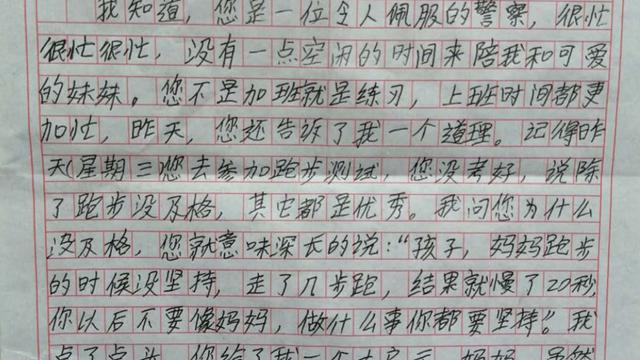 我知道，您是一位令人佩服的警察，很忙
很忙很忙，没有一点空闲的时间来陪我和可爱
的妹妹。您不是加班就是练习，上班时间都更
加忙，昨天，您还告诉了我一个道理。记得昨
天(星期三您去参加跑步测试，您没考好，说除
了跑步没及格，其它都是优秀。我问您为什么
没及格，您就意味深长的说：“孩子，妈妈跑步
的时候没坚持，走了几步跑，结果就慢了20秒，
你以后不要像妈妈，做什么事你都要坚持”。我
点了点头，您给了我一个大启示，妈妈，虽然